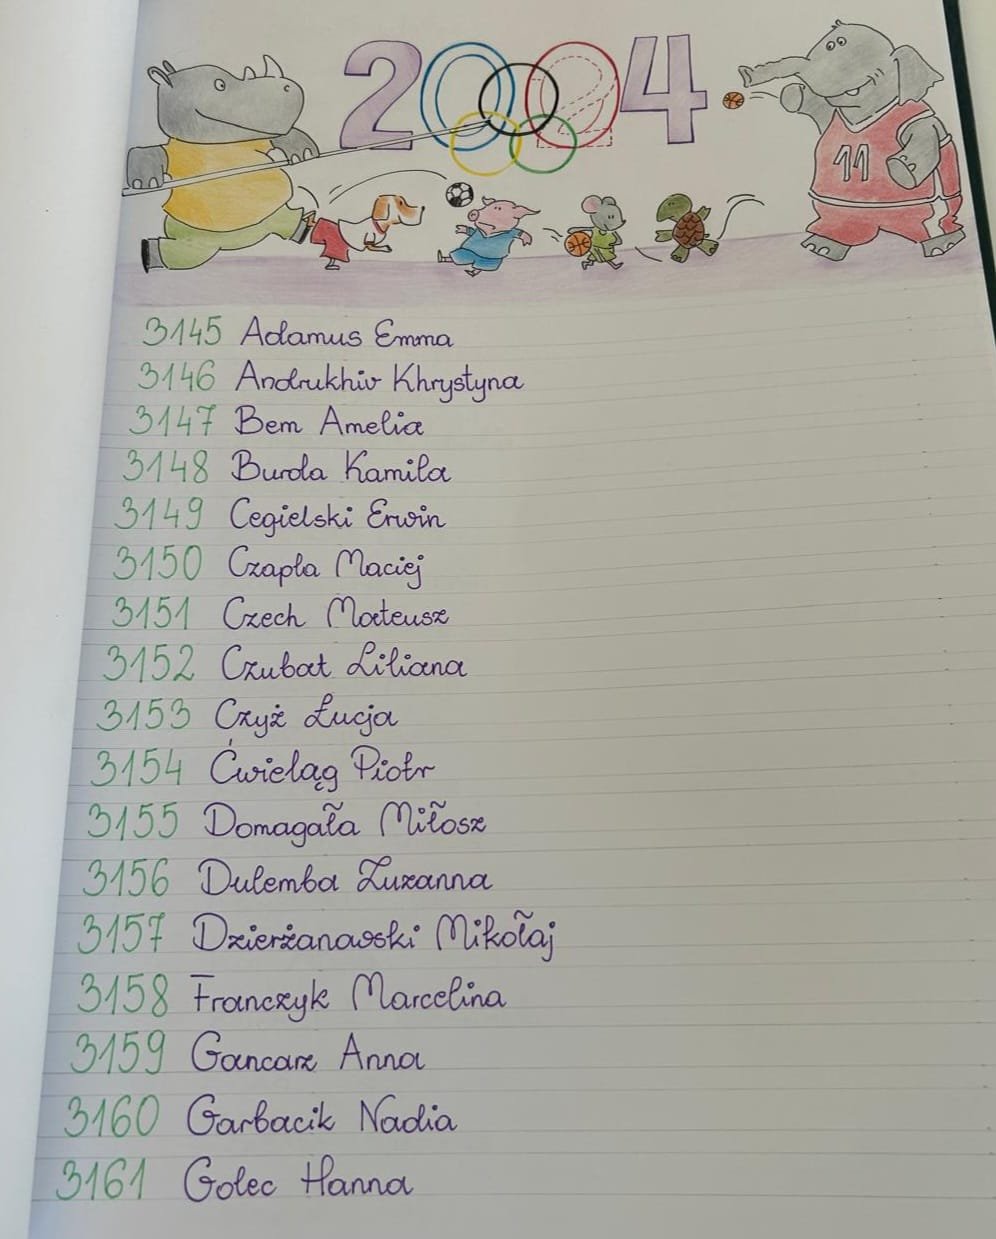 2024
11
3145 Adamus Emma
3146 Andrukhiv Khrystyna
3147 Bem Amelia
3148 Burda Kamila
3149 Cegielski Erwin
3150 Czapla Maciej
3151 Czech Mateusz
3152 Czubat Liliana
3153 Czyż Łucja
3154 Ćwieląg Piotr
3155 Domagała Miłosz
3156 Dulemba Zuzanna
3157 Dzierżanowski Mikołaj
3158 Franczyk Marcelina
3159 Gancarz Anna
3160 Garbacik Nadia
3161 Golec Hanna